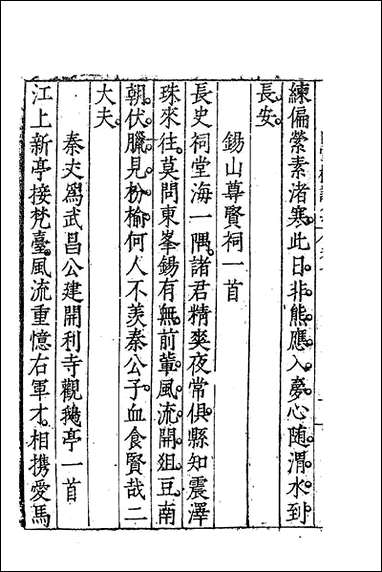 練偏縈素渚寒此日非熊應入夢心随渭水到
長安
錫山尊賢祠一首
長史祠堂海一隅諸君精爽夜常俱縣知震澤
珠來往莫問東峯錫有無前輩風流開俎豆南
朝伏臘見枌榆何人不羨秦公子血食賢哉二
大夫
秦丈爲武昌公建開利寺觀鵝亭一首
江上新亭接梵臺風流重憶右軍才相携愛馬